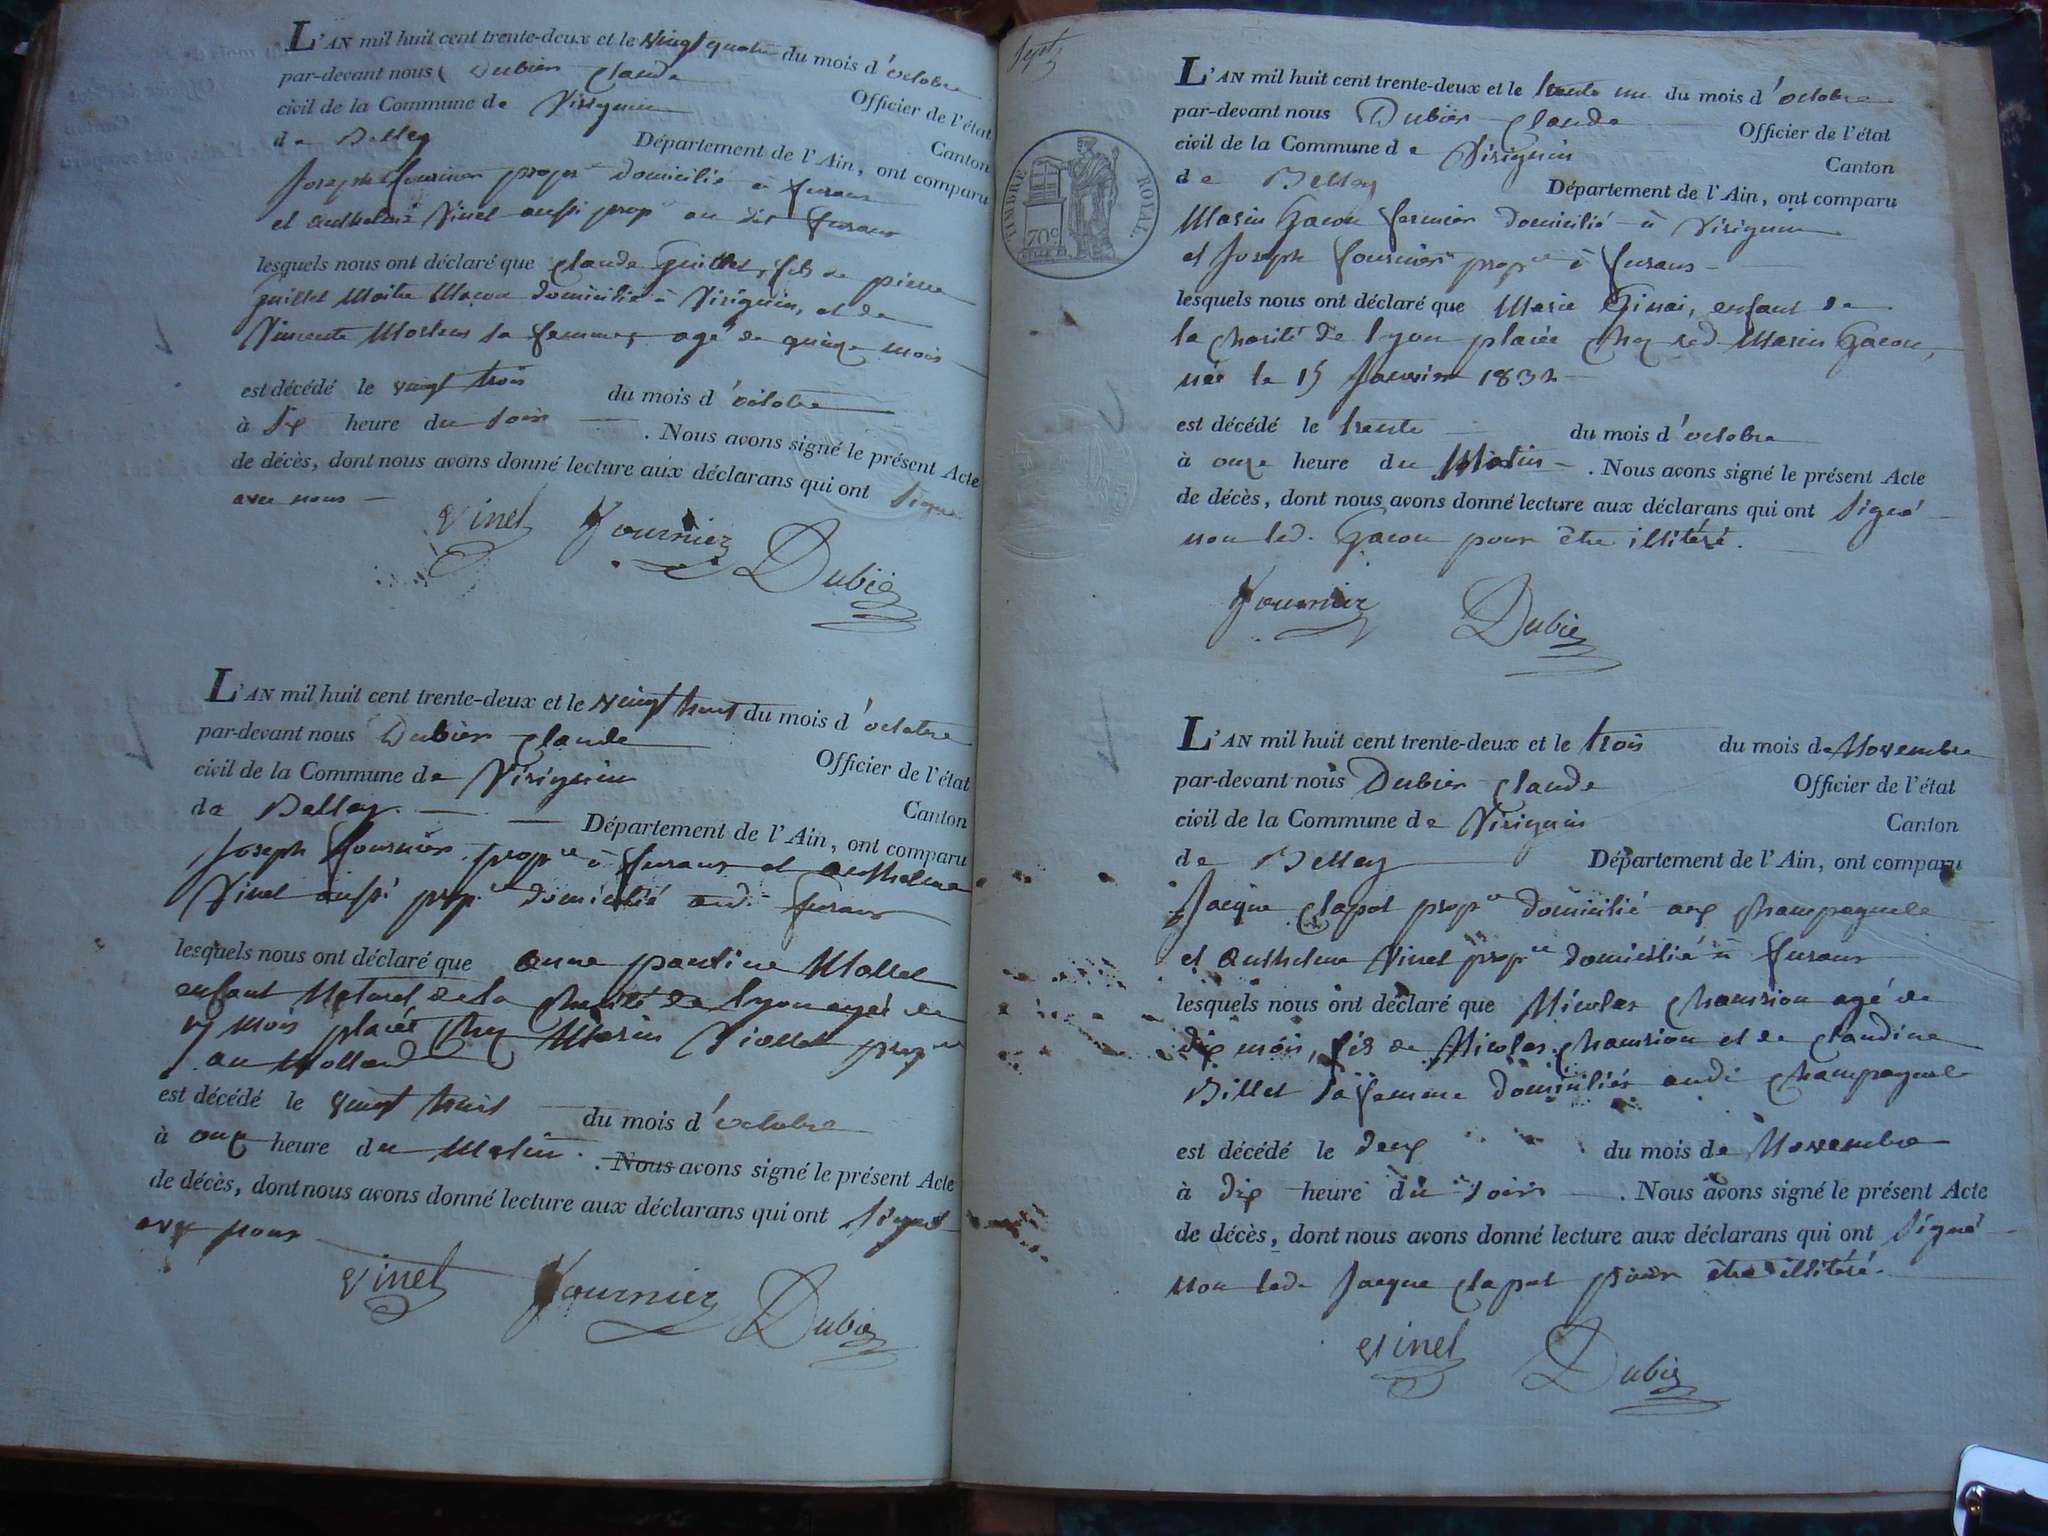 L'AN mil huit cent trente-deux et le vingt quatre du mois d'octobre
par-devant nous Dubier Claude Officier de l'état
civil de la Commune de Virignin Canton
de Belley Département de l'Ain, ont comparu
Joseph fournier propre domicilié à furans
et anthelme Vinel aussi propre au dit furans
lesquels nous ont déclaré que Claude Guillet, fils de pierre
guillet Maitre Maçon domicilié à Virignin, et de
Vincente sa femme, agé de quinze mois
est décédé le vingt trois du mois d'octobre
à six heure du soir. Nous avons signé le présent Acte
de décès, dont nous avons donné lecture aux déclarans qui ont signé
avec nous
Vinel Fournier Dubier
L'AN mil huit cent trente-deux et le vingt huit du mois d'octobre
par-devant nous Dubier Claude Officier de l'état
civil de la Commune de Virignin Canton
de Belley Département de l'Ain, ont comparu
Joseph fournier propre à furans et anthelme
Vinel aussi propre domicilié audi furans
lesquels nous ont déclaré que anne pauline Mallet
enfant Naturel de la charité de lyon agée de
mois placée chez Marin Viollet propre
au Molland
est décédé le vingt huit du mois d'octobre
à onze heure du Matin. Nous avons signé le présent Acte
de décès, dont nous avons donné lecture aux déclarans qui ont signé
avec nous
Vinel Fournier Dubier
Sept
TIMBRE ROYAL.
70c
L'AN mil huit cent trente-deux et le trente un du mois d'octobre
par-devant nous Dubier Claude Officier de l'état
civil de la Commune de Virignin Canton
de Belley Département de l'Ain, ont comparu
Marin Gacon fermier domicilié à Virignin
et Joseph fournier propre à furans
lesquels nous ont déclaré que Marie Ginai, enfant de
la charité de lyon placée chez led Marin Gacon,
née le 15 Janvier 1832
est décédé le trente du mois d'octobre
à onze heure du Matin. Nous avons signé le présent Acte
de décès, dont nous avons donné lecture aux déclarans qui ont signé
non led. Gacon pour être illitéré.
Fournier Dubier
L'AN mil huit cent trente-deux et le trois du mois de Novembre
par-devant nous Dubier Claude Officier de l'état
civil de la Commune de Virignin Canton
de Belley Département de l'Ain, ont comparu
Jacque Clapot propre domicilié aux Champagnele
et anthelme Vinel propre domicilié à furans
lesquels nous ont déclaré que Nicolas Chamrion agé de
dix mois, fils de Nicolas Chamrion et de Claudine
Billet sa femme domiciliés audi Champagnele
est décédé le deux du mois de Novembre
à dix heure du soir. Nous avons signé le présent Acte
de décès, dont nous avons donné lecture aux déclarans qui ont signé
non led. Jacque Clapot pour être illitéré.
Vinel Dubier